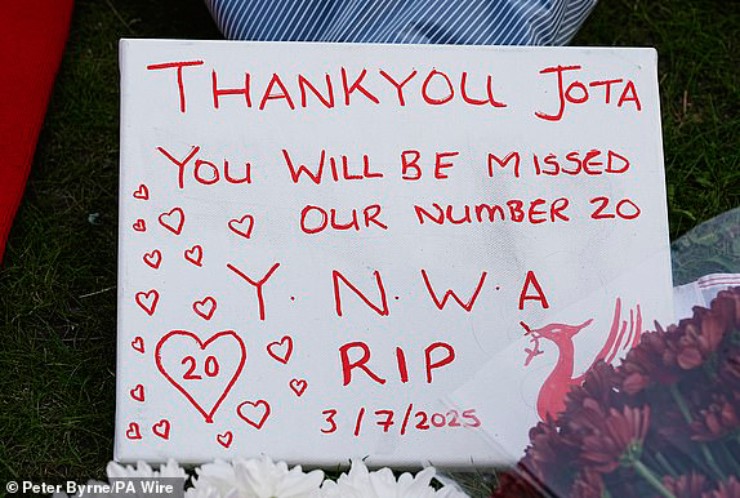 THANKYOU JOTA
YOU WILL BE MISSED
OUR NUMBER 20
Y. N. W. A
20
RIP
3/7/2025
© Peter Byrne/PA Wire